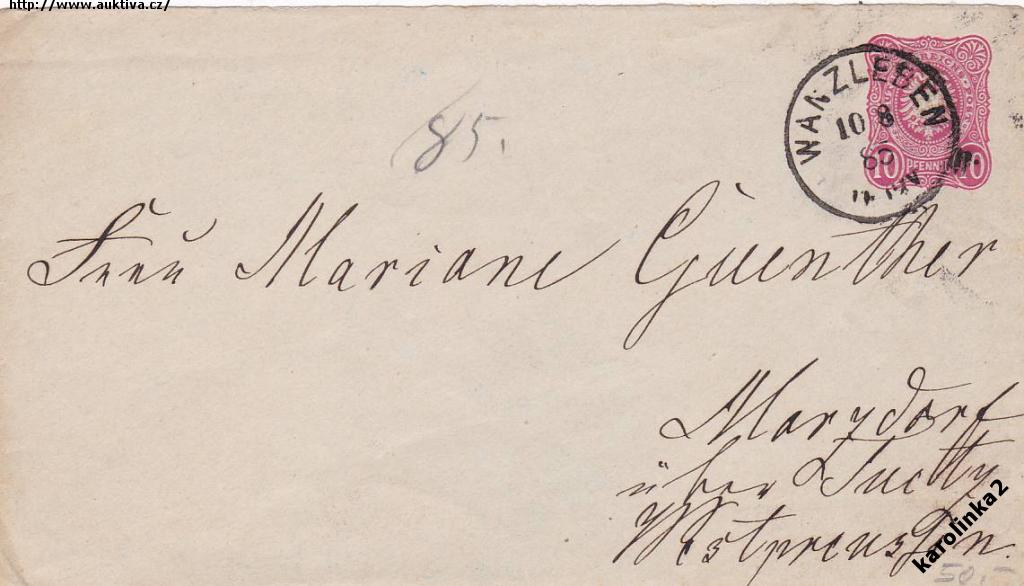 http://www.auktiva.cz/
WANZLEBEN
10 8
10 PFENNIG 10
85.
Frau Mariane Guenther
Marzdorf
über
Westpreussen.
karolinka2
50,-